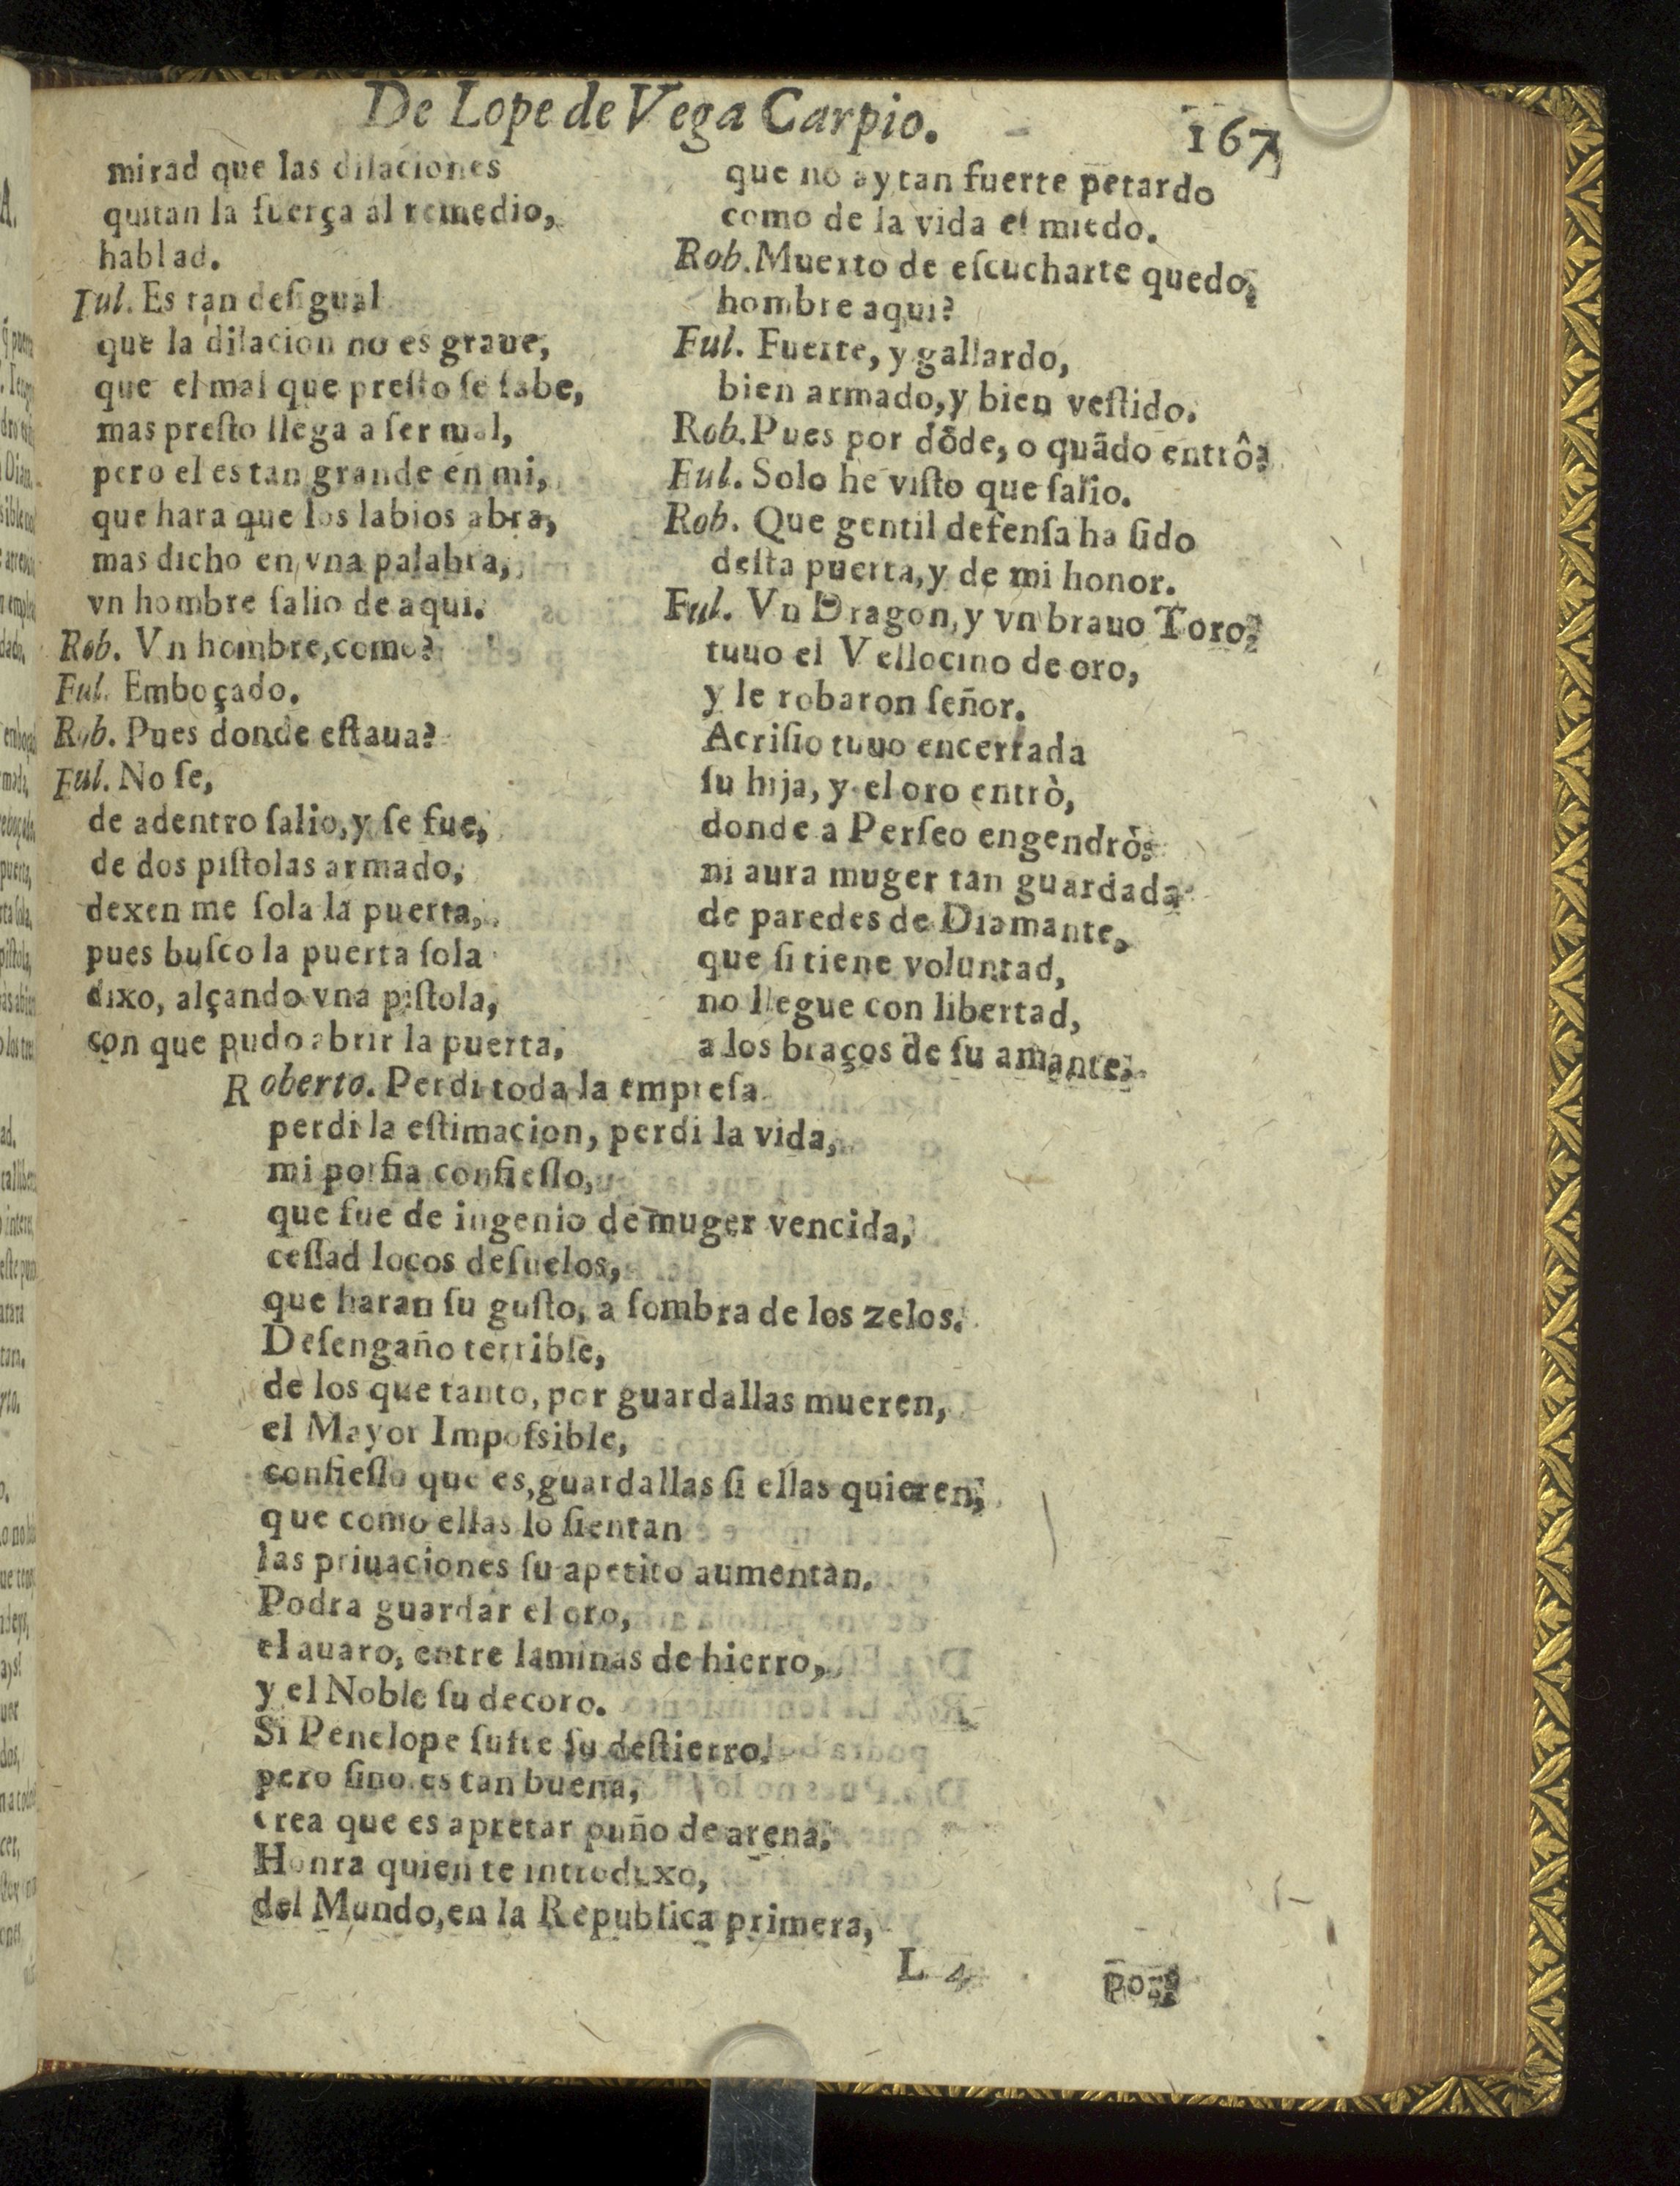 De Lope de Vega Carpio. 167
mirad que las dilaciones
quitan la fuerça al remedio,
hablad.
Iul. Es tan desigual
que la dilacion no es graue,
que el mal que presto se sabe,
mas presto llega a ser mal,
pero el es tan grande en mi,
que hara que los labios abra,
mas dicho en vna palabra,
vn hombre salio de aqui.
Rob. Vn hombre, como?
Ful. Emboçado.
Rob. Pues donde estaua?
Ful. No se,
de adentro salio, y se fue,
de dos pistolas armado,
dexen me sola la puerta,
pues busco la puerta sola
dixo, alçando vna pistola,
con que pudo abrir la puerta,
que no ay tan fuerte petardo
como de la vida el miedo.
Rob. Muerto de escucharte quedo,
hombre aqui?
Ful. Fuerte, y gallardo,
bien armado, y bien vestido.
Rob. Pues por dõde, o quãdo entrô?
Ful. Solo he visto que salio.
Rob. Que gentil defensa ha sido
desta puerta, y de mi honor.
Ful. Vn Dragon, y vn brauo Toro,
tuuo el Vellocino de oro,
y le robaron señor.
Acrisio tuuo encerrada
su hija, y el oro entrò,
donde a Perseo engendrò:
ni aura muger tan guardada
de paredes de Diamante,
que si tiene voluntad,
no llegue con libertad,
a los braços de su amante.
Roberto. Perdi toda la empresa
perdi la estimacion, perdi la vida,
mi porfia confiesso,
que fue de ingenio de muger vencida,
cessad locos desuelos,
que haran su gusto, a sombra de los zelos.
Desengaño terrible,
de los que tanto, por guardallas mueren,
el Mayor Impossible,
confiesso que es, guardallas si ellas quieren,
que como ellas lo sientan
las priuaciones su apetito aumentan.
Podra guardar el oro,
el auaro, entre laminas de hierro,
y el Noble su decoro.
Si Penelope sufre su destierro,
pero sino es tan buena,
crea que es apretar puño de arena.
Honra quien te introduxo,
del Mundo, en la Republica primera,
L 4